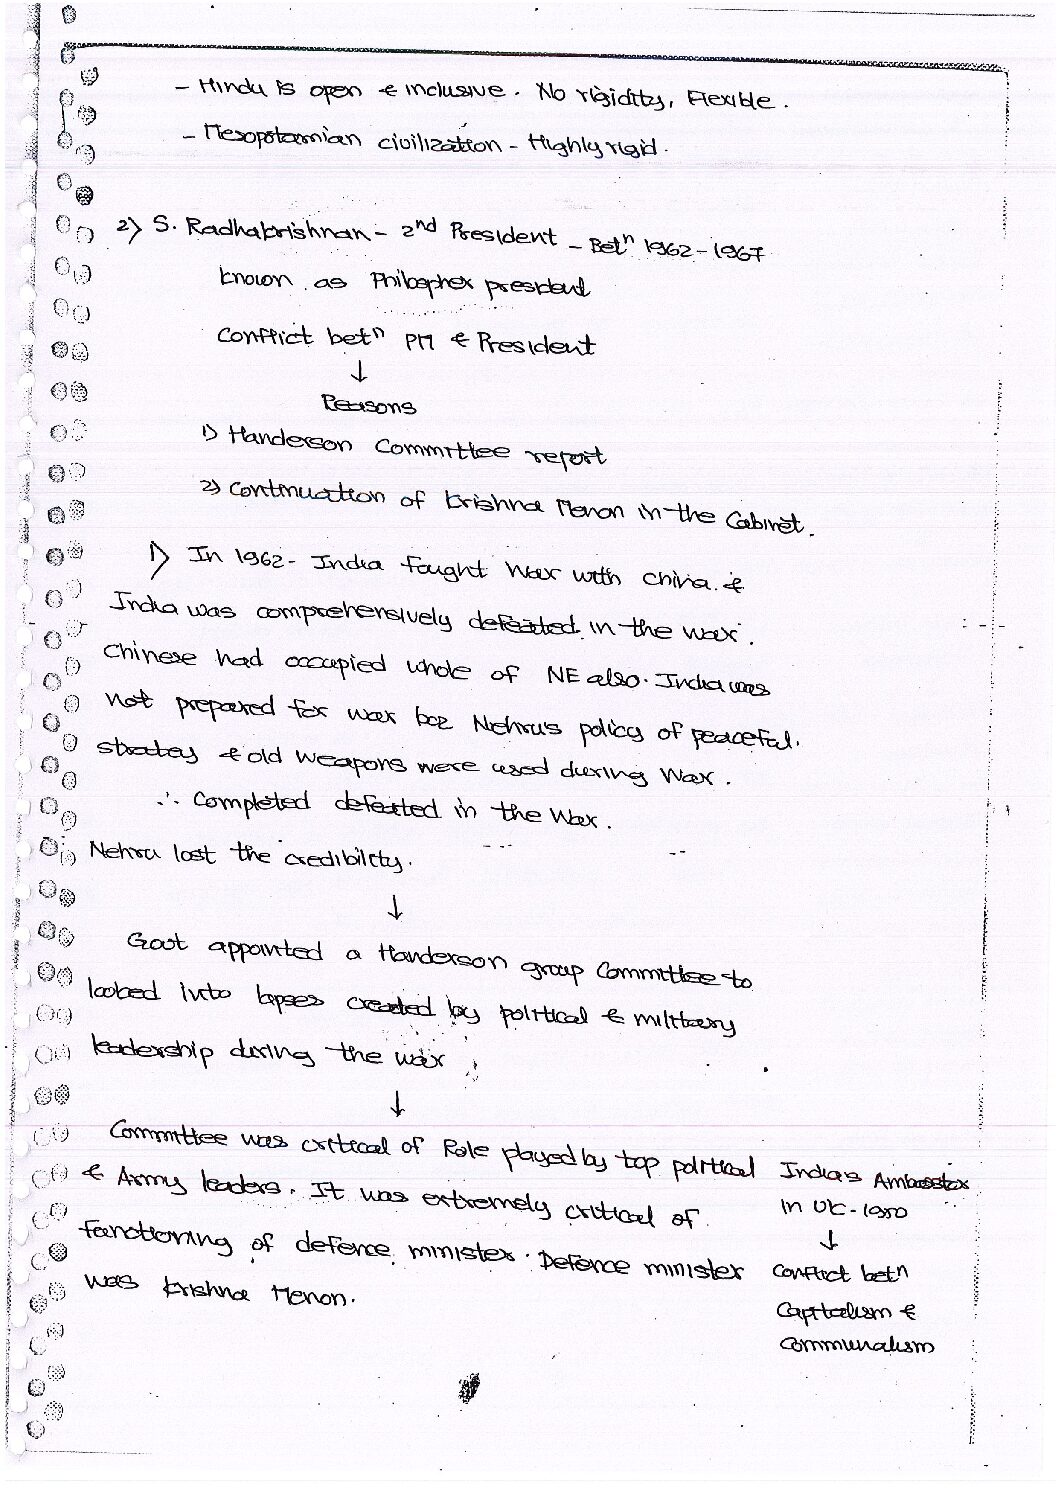 - Hindu is open & inclusive. No rigidity, Flexible.
- Mesopotamian civilization - Highly rigid.
2) S. Radhakrishnan - 2nd President - Betn 1962-1967
known as Philospher president
Conflict betn PM & President
↓
Reasons
1) Handerson Committee report
2) Continuation of Krishna Menon in the Cabinet.
1) In 1962 - India fought war with china. &
India was comprehensively defeated in the war.
Chinese had occupied whole of NE also. India was
not prepared for war bcz Nehru's policy of peaceful.
stratey & old weapons were used during war.
∴ Completed defeated in the war.
Nehru lost the credibility.
↓
Govt appointed a Handerson group Committee to
looked into lapses created by political & military
leadership during the war
↓
Committee was critical of Role played by top political
& Army leaders. It was extremely critical of
functioning of defence minister. Defence minister
was Krishna Menon.
India's Ambasstor
in UK - 1950
↓
Conflict betn
Capitalism &
Communalism